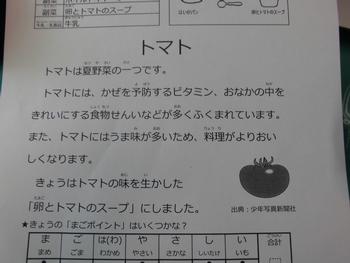 副菜
副菜 卵とトマトのスープ
牛乳
はいがパン
卵とトマトのスープ
トマト
トマトは夏野菜の一つです。
トマトには、かぜを予防するビタミン、おなかの中を
きれいにする食物せんいなどが多くふくまれています。
また、トマトにはうま味が多いため、料理がよりおい
しくなります。
きょうはトマトの味を生かした
「卵とトマトのスープ」にしました。
出典:少年写真新聞社
★きょうの「まごポイント」はいくつかな?
ま ご は(わ) や さ し い 合計
まめ ごま わかめ やさい さかな しいたけ いも